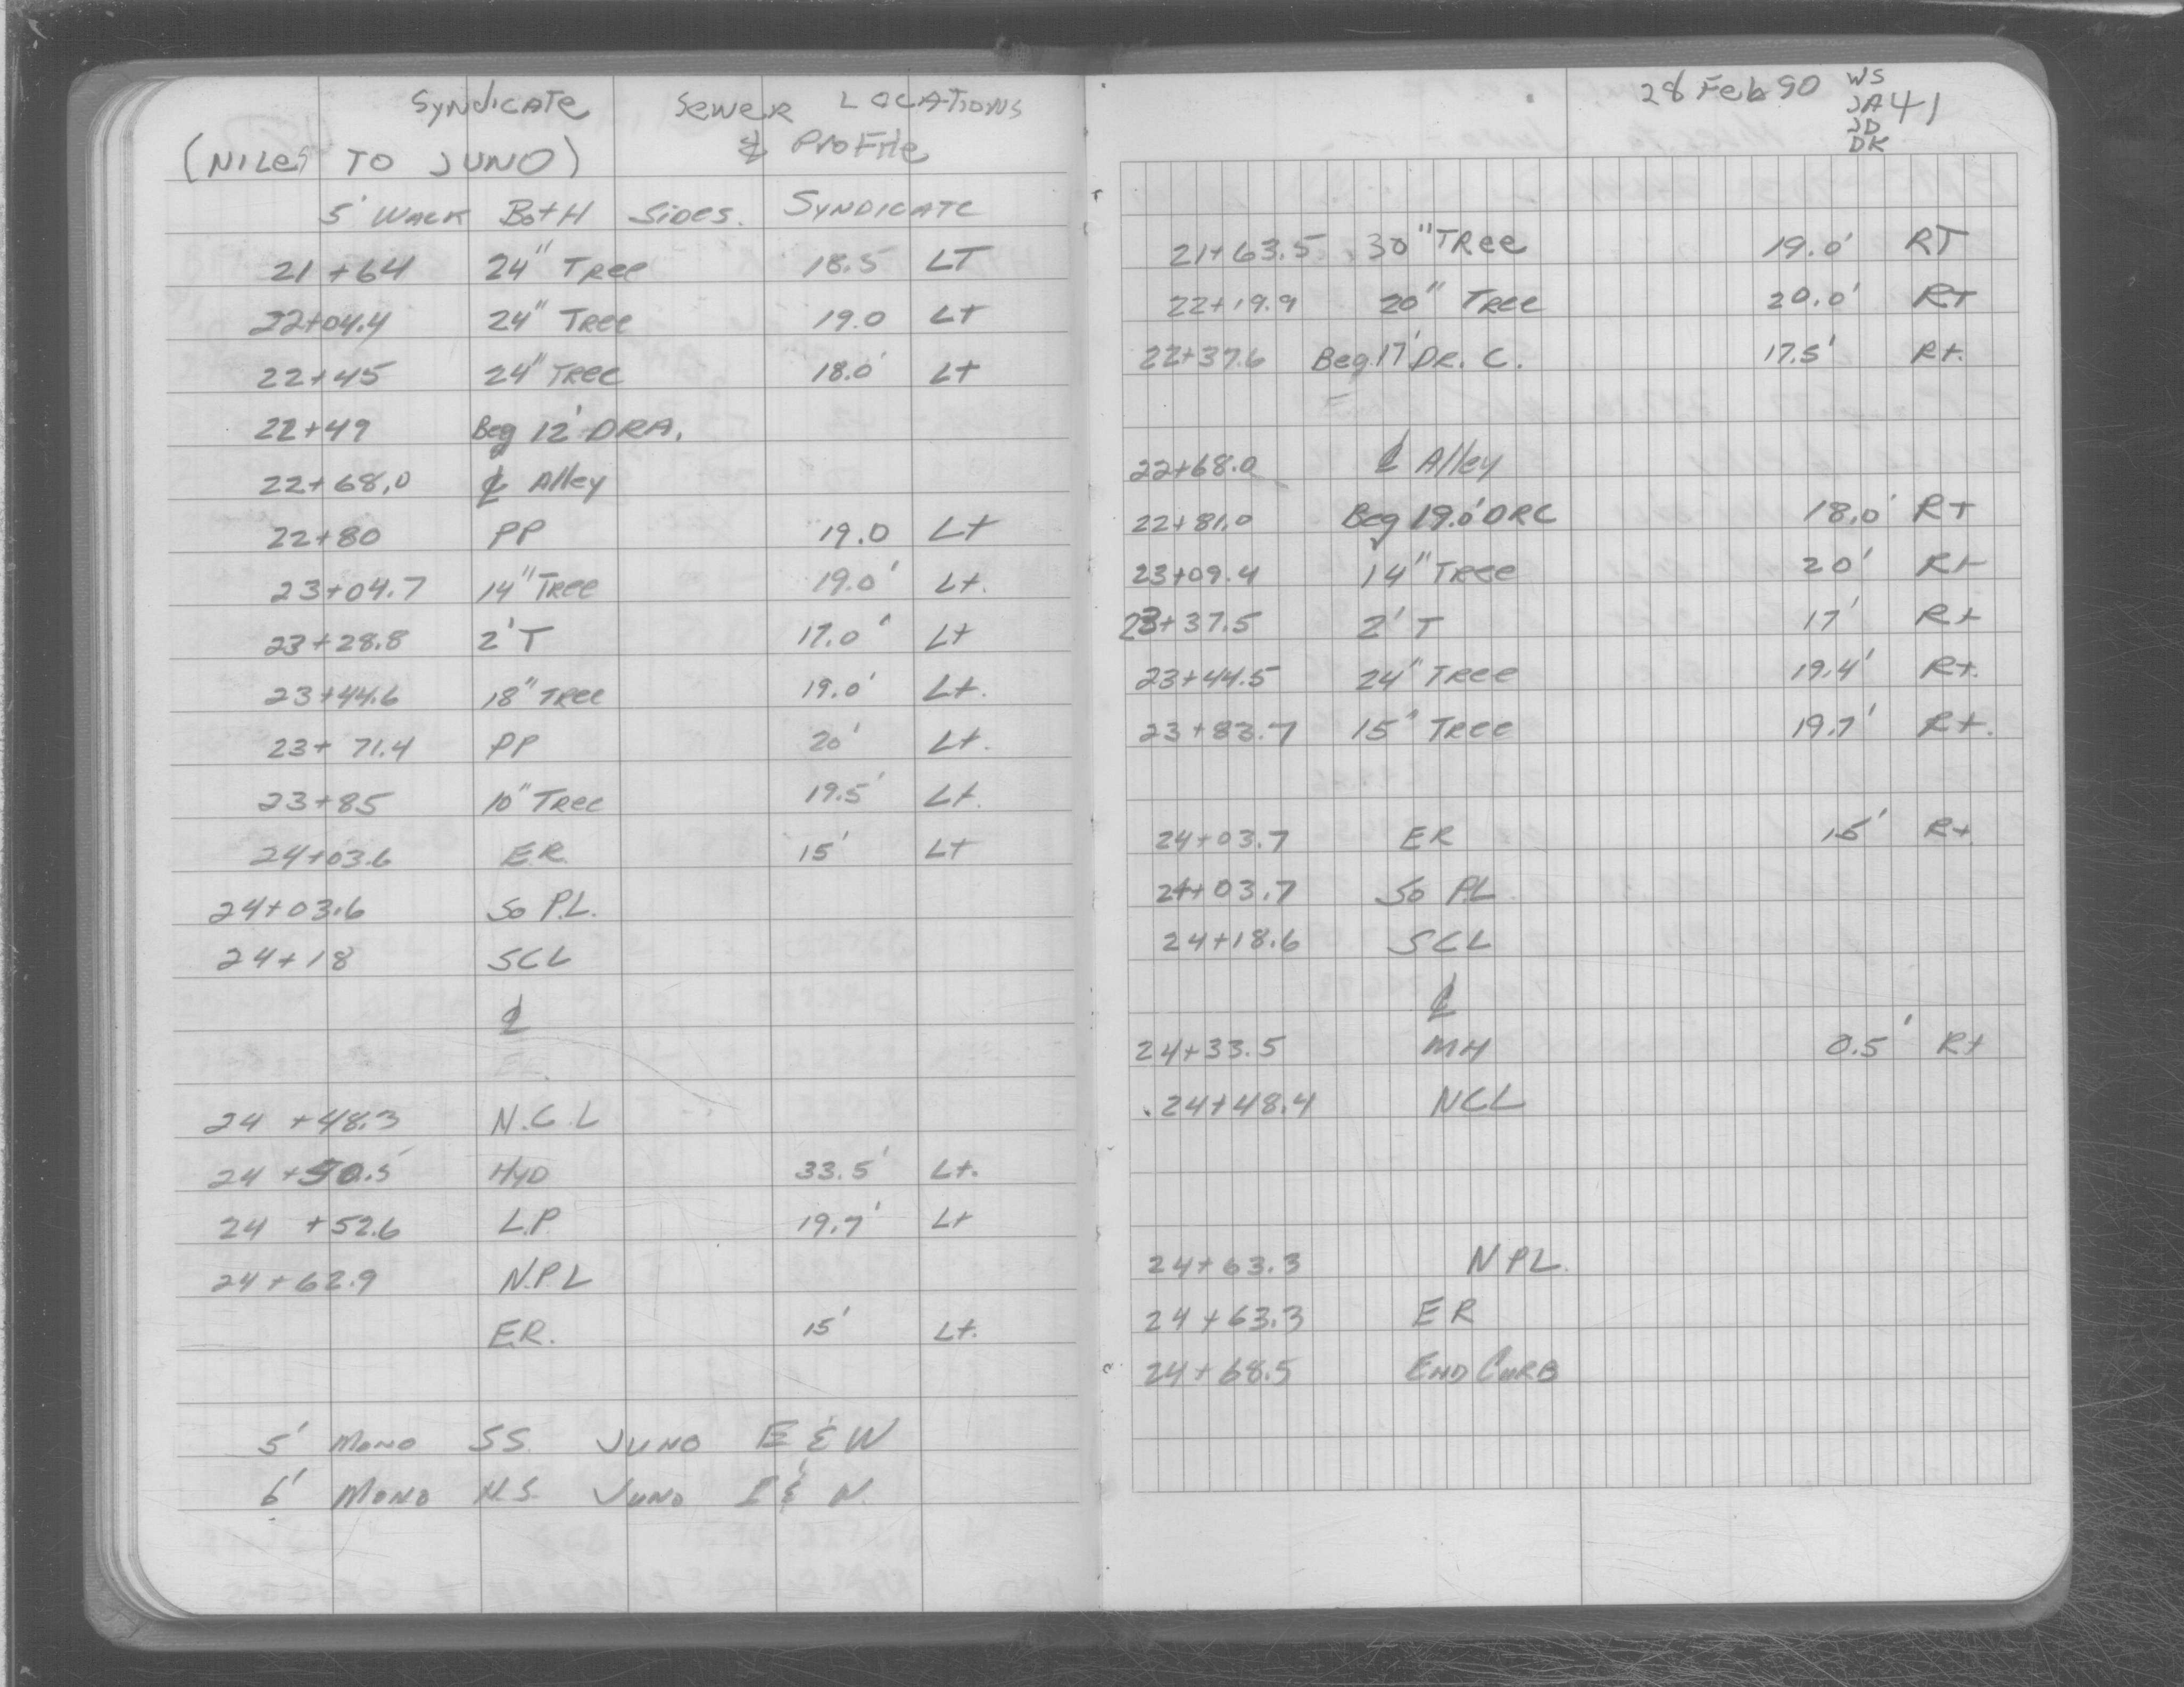 Syndicate Sewer Locations
(Niles to Juno) & Profile
5' Walk Both Sides. Syndicate
21+64 24" Tree 18.5 LT
22+04.4 24" Tree 19.0 Lt
22+45 24" Tree 18.0' Lt
22+49 Beg 12' DRA.
22+68.0 ℄ Alley
22+80 PP 19.0 Lt
23+04.7 14" Tree 19.0' Lt.
23+28.8 2' T 17.0' Lt
23+44.6 18" Tree 19.0' Lt.
23+71.4 PP 20' Lt.
23+85 10" Tree 19.5' Lt.
24+03.6 E.R. 15' Lt
24+03.6 So P.L.
24+18 SCL
℄
24+48.3 N.C.L
24+50.5 Hyd 33.5' Lt.
24+52.6 L.P 19.7' Lt
24+62.9 N.P.L
E.R. 15' Lt.
5' Mono SS. Juno E & W
6' Mono N.S. Juno
28 Feb 90 WS
JA 41
JD
DK
21+63.5 30" Tree 19.0' RT
22+19.9 20" Tree 20.0' Rt
22+37.6 Beg. 17' DR. C. 17.5' Rt.
22+68.0 ℄ Alley
22+81.0 Beg 19.0' DRC 18.0' Rt
23+09.4 14" Tree 20' Rt
23+37.5 2' T 17' Rt
23+44.5 24" Tree 19.4' Rt.
23+83.7 15" Tree 19.7' Rt.
24+03.7 ER 15' Rt
24+03.7 So PL.
24+18.6 SCL
℄
24+33.5 MH 0.5' Rt
24+48.4 NCL
24+63.3 N PL.
24+63.3 ER
24+68.5 End Curb